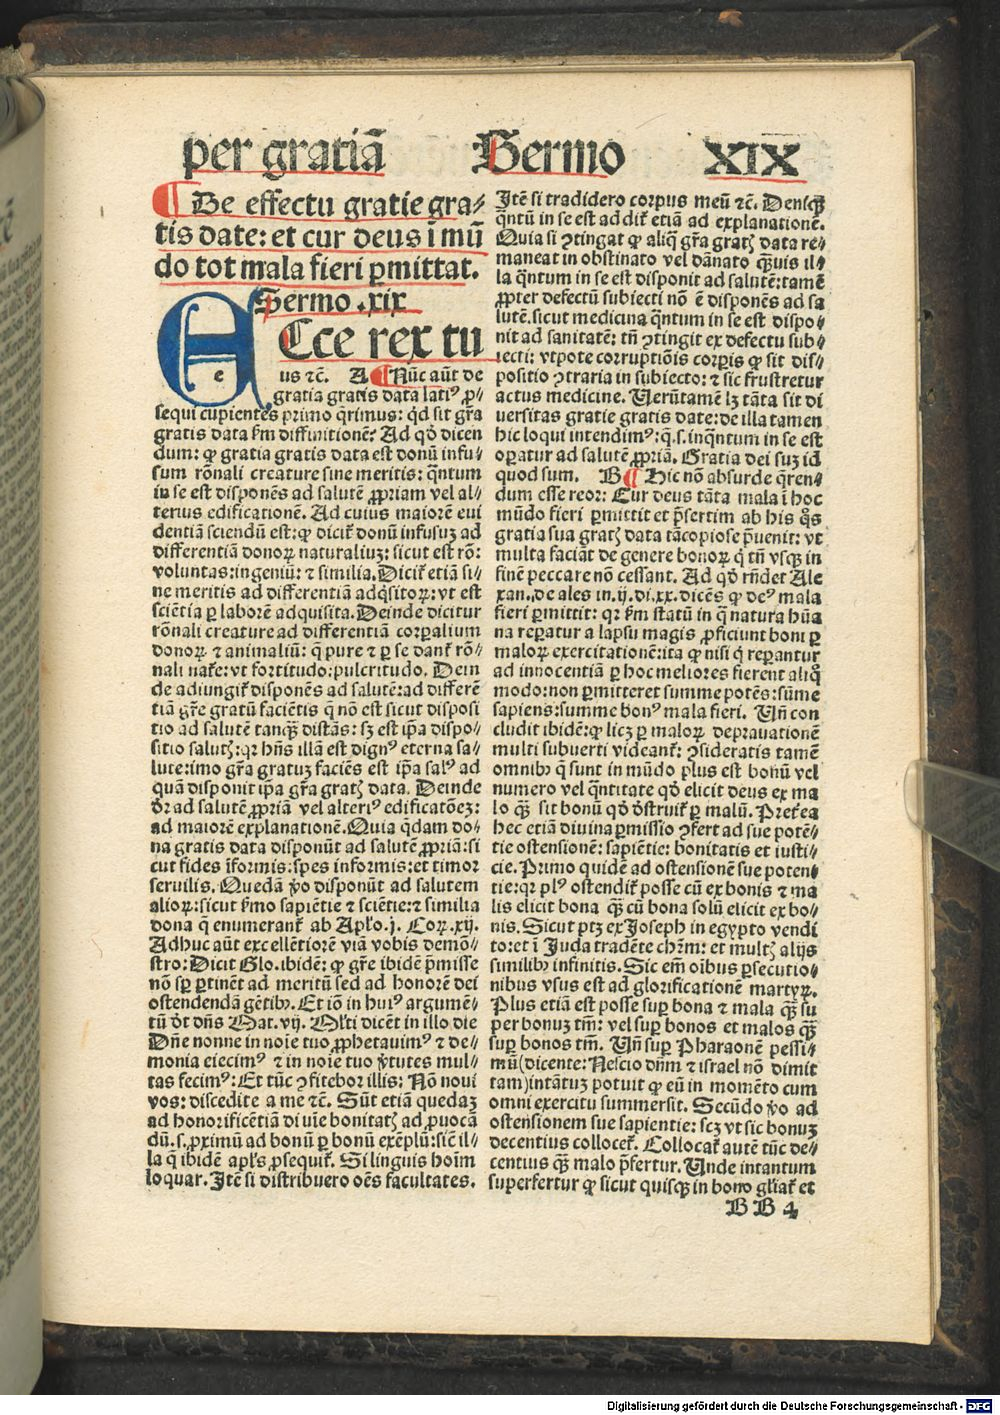 per gratiā Sermo XIX
¶ De effectu gratie gra⸗
tis date: et cur deus ī mū
do tot mala fieri ꝑmittat.
Sermo .xix
Ecce rex tu
us ⁊c̄. A ¶ Nūc aūt de
gratia gratis data latiꝰ ꝓ⸗
sequi cupientes primo q̄rimus: qd̄ sit gr̄a
gratis data ẜm diffinitionē? Ad qđ dicen
dum: ꝙ gratia gratis data est donū infu⸗
sum rōnali creature sine meritis: q̄ntum
in se est disponēs ad salutē ꝓpriam vel al⸗
terius edificationē. Ad cuius maiorē eui
dentiā sciendū est: ꝙ dicit᷑ donū infusuꝫ ad
differentiā donoꝝ naturaliuꝫ: sicut est rō:
voluntas: ingeniū: ⁊ similia. Dicit᷑ etiā si⸗
ne meritis ad differentiā adq̄sitoꝝ: vt est
sciētia ꝑ laborē adquisita. Deinde dicitur
rōnali creature ad differentiā corꝑalium
donoꝝ ⁊ animaliū: q̄ pure ⁊ ꝑ se dant᷑ rō⸗
nali nat᷑e: vt fortitudo: pulcritudo. Dein
de adiungit᷑ disponēs ad salutē: ad differē
tiā gr̄e gratū faciētis q̄ nō est sicut disposi
tio ad salutē tanqꝫ distās: sꝫ est ip̄a dispo⸗
sitio salutꝭ: qꝛ hn̄s illā est dignꝰ eterna sa⸗
lute: imo gr̄a gratuꝫ faciēs est ip̄a salꝰ ad
quā disponit ip̄a gr̄a gratꝭ data. Deinde
dr̄ ad salutē ꝓpriā vel alteriꝰ edificatōeꝫ:
ad maiorē explanationē. Quia q̄dam do⸗
na gratis data disponūt ad salutē ꝓpriā: si
cut fides īformis: spes informis: et timor
seruilis. Quedā ꝟo disponūt ad salutem
alioꝝ: sicut ẜmo sapiētie ⁊ sciētie: ⁊ similia
dona q̄ enumerant᷑ ab Apl̄o .j. Coꝝ. xij.
Adhuc aūt excellētiorē viā vobis demō⸗
stro: Dicit Glo. ibidē: ꝙ gr̄e ibidē p̄misse
nō sꝑ ꝑtinēt ad meritū sed ad honorē dei
ostendendā gētibꝰ. Et iō in huiꝰ argumē⸗
tū dt̄ dn̄s Mat. vij. Ml̄ti dicēt in illo die
Dn̄e nonne in noīe tuo ꝓphetauimꝰ ⁊ de⸗
monia eiecimꝰ ⁊ in noīe tuo ꝟtutes mul⸗
tas fecimꝰ: Et tūc ꝯfitebor illis: Nō noui
vos: discedite a me ⁊c̄. Sūt etiā quedaꝫ
ad honorificētiā diuīe bonitatꝭ ad ꝓuocā
dū .s. ꝓximū ad bonū ꝑ bonū exēplū: sic̄ il⸗
la q̄ ibidē apl̄s ꝓsequit᷑. Si linguis hoīm
loquar. Itē si distribuero oēs facultates.
Itē si tradidero corpus meū ⁊c̄. Deniqꝫ
q̄ntū in se est ad dit᷑ etiā ad explanationē.
Quia si ꝯtingat ꝙ aliq̄ gr̄a gratꝭ data re⸗
maneat in obstinato vel dānato qꝫuis il⸗
la q̄ntum in se est disponit ad salutē: tamē
ꝓpter defectū subiecti nō ē disponēs ad sa
lutē. sicut medicina q̄ntum in se est dispo⸗
nit ad sanitatē: tn̄ ꝯtingit ex defectu sub⸗
iecti: vtpote corruptiōis corꝑis ꝙ sit dis⸗
positio ꝯtraria in subiecto: ⁊ sic frustretur
actus medicine. Uerūtamē lꝫ tāta sit di
uersitas gratie gratis date: de illa tamen
hic loqui intendimꝰ: q̄ .s. inq̄ntum in se est
oꝑatur ad salutē ꝓpriā. Gratia dei suꝫ id
quod sum. B ¶ Hic nō absurde q̄ren⸗
dum esse reor: Cur deus tāta mala ī hoc
mūdo fieri ꝑmittit et p̄sertim ab his q̊s
gratia sua gratꝭ data tā copiose p̄uenit: vt
multa faciāt de genere bonoꝝ q̄ tn̄ vsqꝫ in
finē peccare nō cessant. Ad qđ rn̄det Ale
xan. de ales in .ij. di. xx. dicēs ꝙ deꝰ mala
fieri ꝑmittit: qꝛ ẜm statū in q̊ natura hūa
na reꝑatur a lapsu magis ꝓficiunt boni ꝑ
maloꝝ exercitationē: ita ꝙ nisi q̄ reꝑantur
ad innocentiā ꝑ hoc meliores fierent aliq̊
modo: non ꝑmitteret summe potēs: sūme
sapiens: summe bonꝰ mala fieri. Un̄ con
cludit ibidē: ꝙ licꝫ ꝑ maloꝝ deprauationē
multi subuerti videant᷑: ꝯsideratis tamē
omnibꝰ q̄ sunt in mūdo plus est bonū vel
numero vel q̄ntitate qđ elicit deus ex ma
lo qꝫ sit bonū qđ dst̄ruit᷑ ꝑ malū. Pret᷑ea
hec etiā diuina ꝑmissio ꝯfert ad sue potē⸗
tie ostensionē: sapiētie: bonitatis et iusti⸗
cie. Primo quidē ad ostensionē sue poten⸗
tie: qꝛ plꝰ ostendit᷑ posse cū ex bonis ⁊ ma
lis elicit bona qꝫ cū bona solū elicit ex bo⸗
nis. Sicut ptꝫ ex Joseph in egypto vendi
to: et ī Juda tradēte chr̄m: et multꝭ alijs
similibꝰ infinitis. Sic em̄ oībus ꝑsecutio⸗
nibus vsus est ad glorificationē martyꝝ.
Plus etiā est posse suꝑ bona ⁊ mala qꝫ su
per bonuꝫ tm̄: vel suꝑ bonos et malos qꝫ
suꝑ bonos tm̄. Un̄ suꝑ Pharaonē pessi⸗
mū (dicente: Nescio dn̄m ⁊ israel nō dimit
tam) intātuꝫ potuit ꝙ eū in momēto cum
omni exercitu summersit. Secūdo ꝟo ad
ostensionem sue sapientie: scꝫ vt sic bonuꝫ
decentius collocet᷑. Collocat᷑ autē tūc de⸗
centius qꝫ malo p̄fertur. Unde intantum
superfertur ꝙ sicut quisqꝫ in bono gl̄iat᷑ et
BB 4
Digitalisierung gefördert durch die Deutsche Forschungsgemeinschaft - DFG